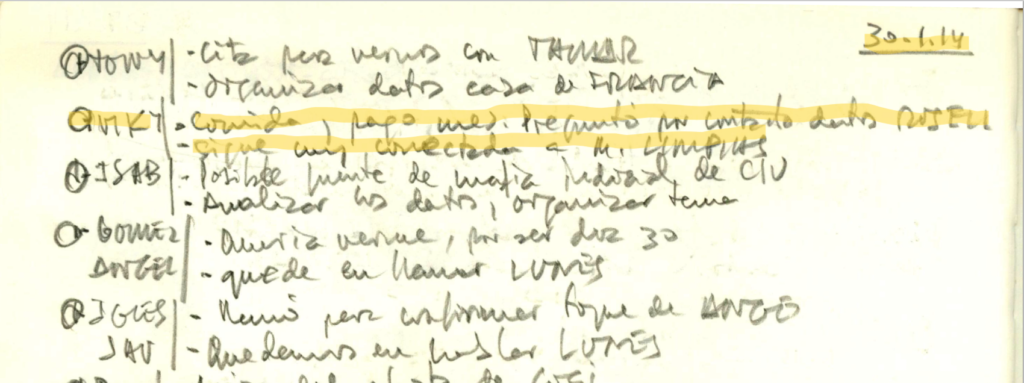 30.1.14
TONY - Cita para vernos con TAMAR
- Organizar datos casa de FRANCIA
VIKY - Comida, pago mes. Preguntó por contacto dentro ROSELL
- Sigue muy conectada a M.
ISAB - Posible fuente de mafia judicial, de CIU
- Analizar los datos, organizar tema
GOMEZ - Quería verme, por ser día 30
ANGEL - quede en llamar LUNES
IGLES - Llamó para confirmar toque de
JAV - Quedamos en hablar LUNES